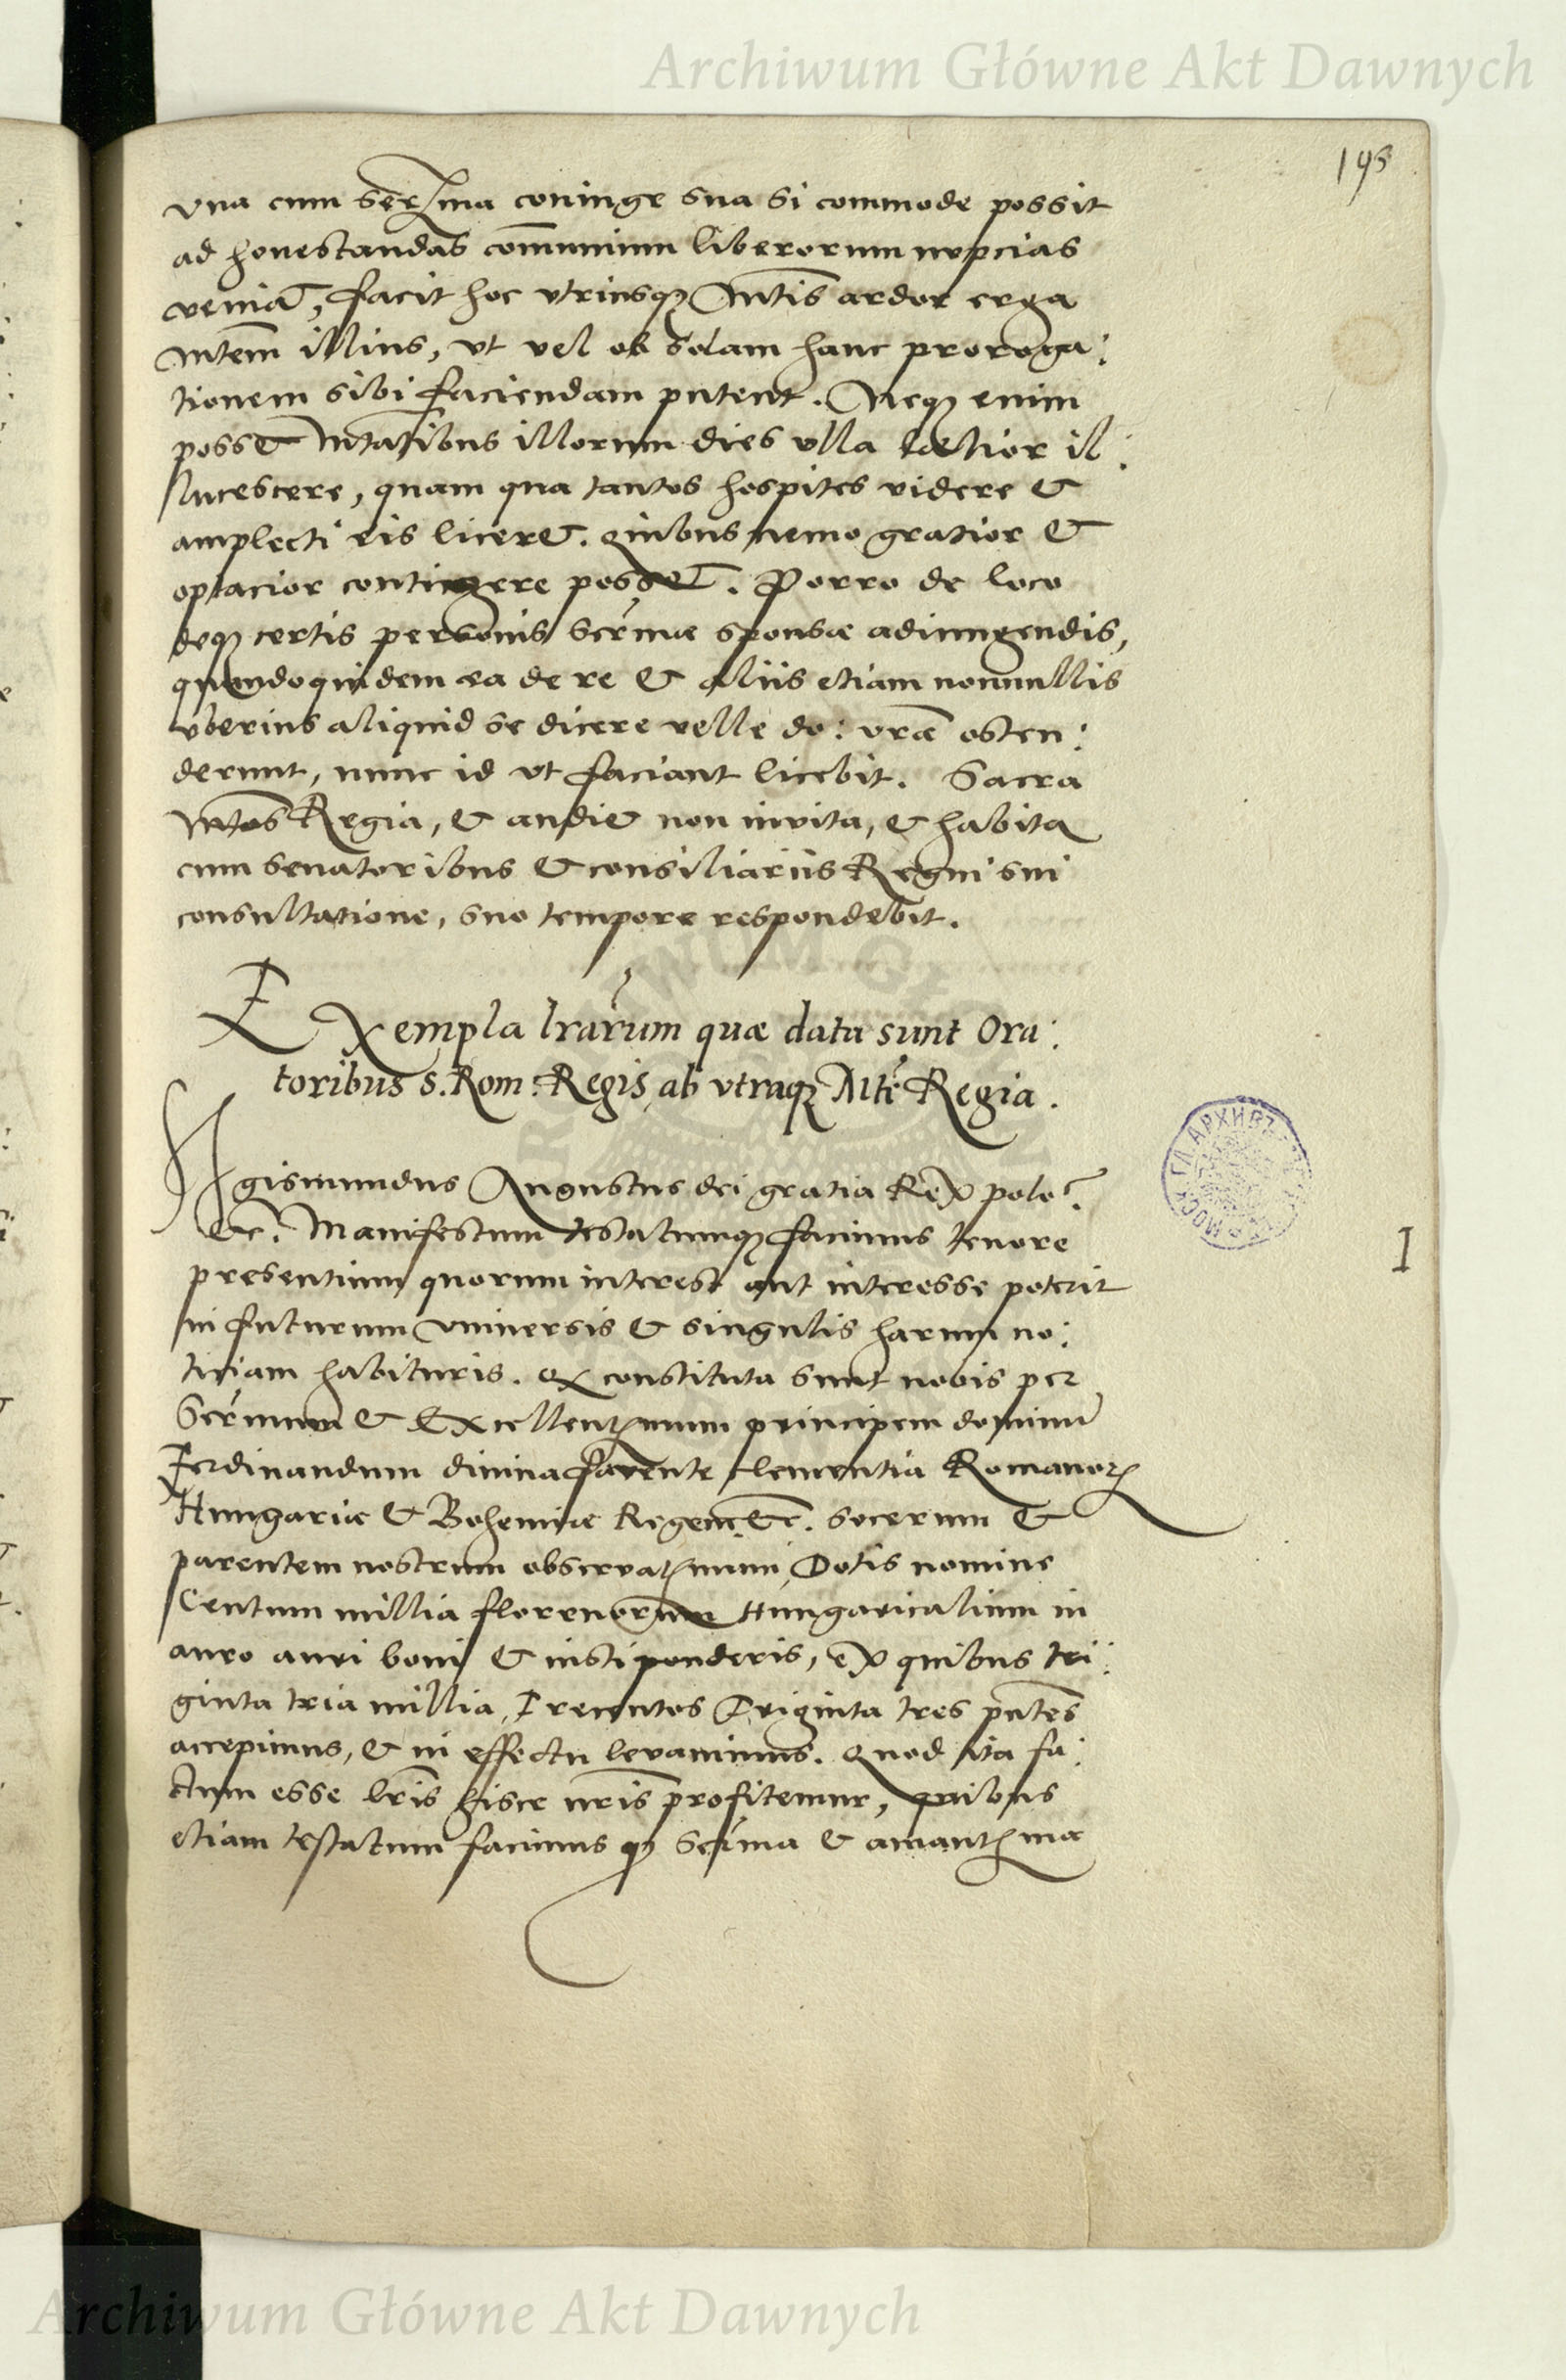 Archiwum Główne Akt Dawnych
195
vna cum Serma coniuge sua si commode possit
ad honestandas com̄unium liberorum nupcias
veniat, facit hoc vtriusq3 Mtis ardor erga
Mtem illius, vt vel ob solam hanc proroga:
tionem sibi faciendam putent. Neq3 enim
posset Mtatibus illorum dies vlla laetior il:
lucescere, quam qua tantos hospites videre &
amplecti eis liceret. quibus nemo gratior &
optacior contingere posset. Porro de loco
deq3 certis personis Sermae sponsae adiungendis,
quandoquidem ea de re & aliis etiam nonnullis
vberius aliquid se dicere velle do: vrae osten:
derunt, nunc id vt faciant licebit. Sacra
Mtas Regia, & audiet non inuita, & habita
cum senatoribus & consiliariis Regni sui
consultatione, suo tempore respondebit.
Exempla lrarum quae data sunt Ora:
toribus S. Rom: Regis ab vtraq3 Mte Regia.
Sigismundus Augustus dei gratia Rex polo:
&c. Manifestum testatumq3 facimus tenore
presentium quorum interest aut interesse poterit
in futurum vniuersis & singulis harum no:
titiam habituris. q constituta sunt nobis per
Sermum & Excellentmum principem dominū
Ferdinandum diuina fauente clementia Romanor
Hungariae & Bohemiae Regem &c. socerum &
parentem nostrum obseruatmum, Dotis nomine
Centum millia florenorum Hungaricalium in
auro auri boni & iusti ponderis, ex quibus tri:
ginta tria millia, Trecentos Triginta tres pntes
accepimus, & in effectu leuauimus. Quod ita fa:
ctum esse lris hisce nris profitemur, quibus
etiam testatum facimus q3 Serma & amantmae
I
Archiwum Główne Akt Dawnych